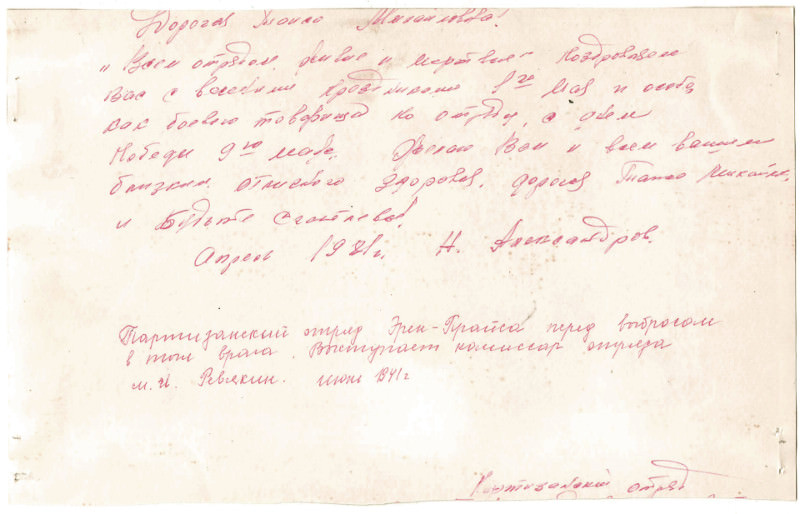 Дорогая Михайловна!
„Всем отрядом живые и мертвые" поздравляем
Вас с весенним праздником 1го Мая и особо
как боевого товарища по отряду, с днем
Победы 9го мая. Желаю Вам и всем вашим
близким отличного здоровья, дорогая
и будьте счастливы!
Апрель 1981г. Н. Александров.
Партизанский отряд перед выбросом
в тыл врага. Выступает комиссар отряда
М. И. Ревякин. июль 1941г
Партизанский отряд